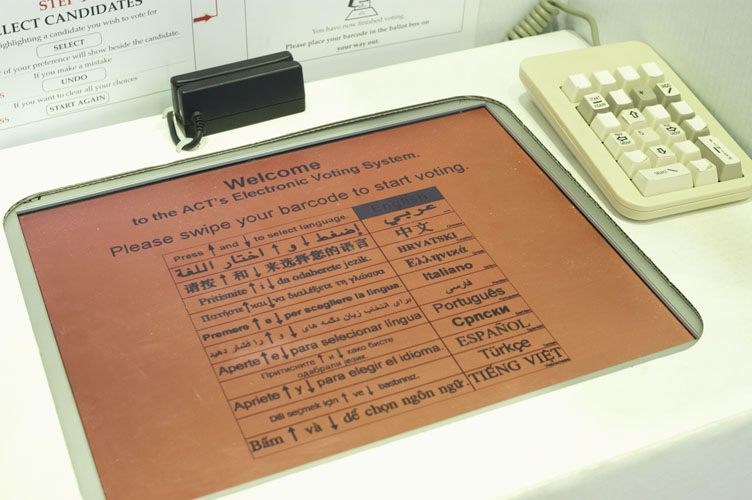 STEP
SELECT CANDIDATES
highlighting a candidate you wish to vote for
SELECT
of your preference will show beside the candidate.
If you make a mistake
UNDO
If you want to clear all your choices
START AGAIN
You have now finished voting.
Please place your barcode in the ballot box on
your way out.
Welcome
to the ACT's Electronic Voting System.
Please swipe your barcode to start voting.
Press ↑ and ↓ to select language. English
إضغط ↑ و ↓ اختار اللغة عربي
请按 ↑ 和 ↓ 来选择您的语言 中文
Pritisnite ↑ i ↓ da odaberete jezik. HRVATSKI
Πατήστε ↑ και ↓ να διαλέξετε τη γλώσσα Ελληνικά
Premere ↑ o ↓ per scegliere la lingua Italiano
برای انتخاب زبان تکمه های ↑ و ↓ را فشار دهید فارسی
Aperte ↑ e ↓ para selecionar língua Português
Притисните ↑ и ↓ како бисте одабрали језик. Српски
Apriete ↑ y ↓ para elegir el idioma ESPAÑOL
Dili seçmek için ↑ ve ↓ bastırınız. Türkçe
Bấm ↑ và ↓ để chọn ngôn ngữ TIẾNG VIỆT